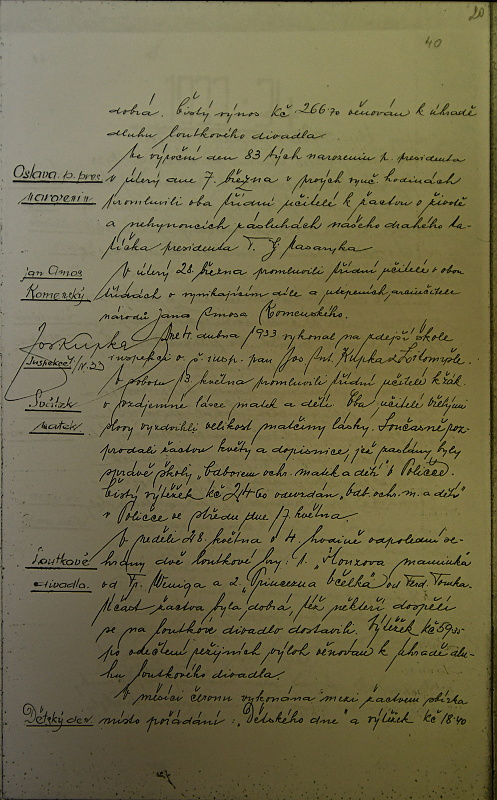 20
40
dobrá. Čistý výnos Kč 266·70 věnován k úhradě
dluhu loutkového divadla.
Oslava p. pres.
narozenin
Na výroční den 83 tých narozenin p. presidenta
v úterý dne 7. března v prvých vyuč. hodinách
promluvili oba třídní učitelé k žactvu o životě
a nehynoucích zásluhách našeho drahého ta-
tíčka presidenta T. G. Masaryka
Jan Amos
Komenský
V úterý 28. března promluvili třídní učitelé v obou
třídách o vynikajícím díle a utrpeních arciučitele
národů Jana Amosa Komenského.
Jos Kupka
Inspekce 4/IV. 33
Dne 4. dubna 1933 vykonal na zdejší škole
inspekci o. š. insp. pan Jos. Ant. Kupka z Litomyšle.
Svátek
matek
V sobotu 13. května promluvili třídní učitelé k žák.
o vzájemné lásce matek a dětí. Oba učitelé vřelými
slovy vyzdvihli velikost matčiny lásky. Současně roz-
prodali žactvu květy a dopisnice, jež zaslány byly
správě školy „Odborem ochr. matek a dětí v Poličce.
Čistý výtěžek Kč 24·60 odevzdán „Odb. ochr. m. a dětí"
v Poličce ve středu dne 17. května.
Loutkové
divadlo.
V neděli 28. května o 4. hodině odpolední se-
hrány dvě loutkové hry: 1. „Honzova maminka"
od Fr. Weniga a 2. „Princezna Včelka" od Ferd. Tomka.
Účast žactva byla dobrá, též někteří dospělí
se na loutkové divadlo dostavili. Výtěžek Kč 59·35
po odečtení režijních výloh věnován k úhradě dlu-
hu loutkového divadla.
Dětský den
V měsíci červnu vykonána mezi žactvem sbírka
místo pořádání: „Dětského dne" a výtěžek Kč 18·40